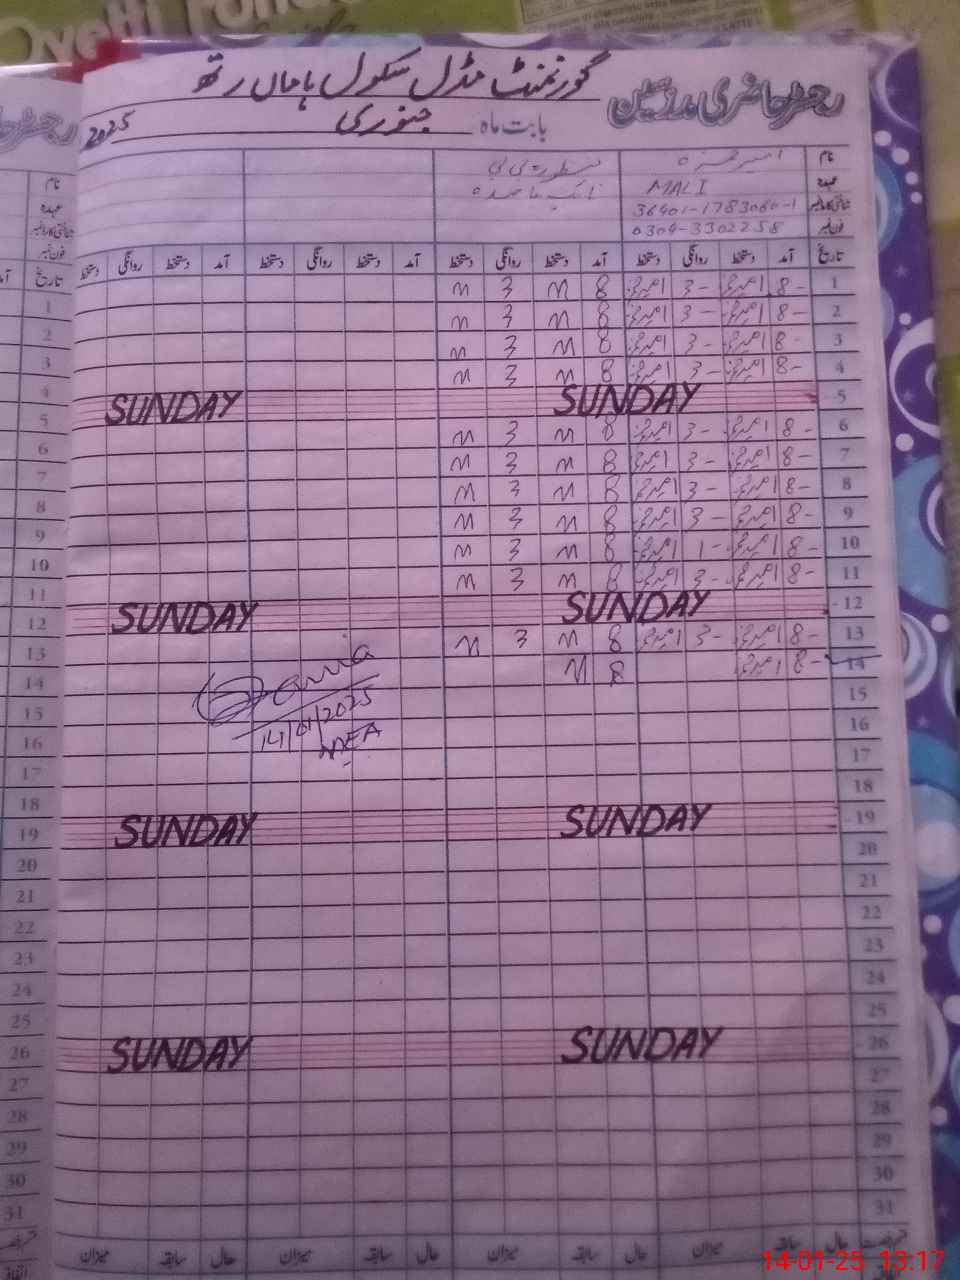 رجسٹر حاضری مدرسین
گورنمنٹ مڈل سکول ہاماں رتھ
بابت ماہ جنوری 2025
نام امیر حمزہ
عہدہ MALI
شناختی کارڈ نمبر 36401-1783060-1
فون نمبر 0304-3302258
تاریخ آمد دستخط روانگی دستخط آمد دستخط روانگی دستخط آمد دستخط روانگی دستخط آمد دستخط روانگی دستخط
1 8- امیر حمزہ 3- امیر حمزہ 8 M 3 M
2 8- امیر حمزہ 3- امیر حمزہ 8 M 3 M
3 8- امیر حمزہ 3- امیر حمزہ 8 M 3 M
4 8- امیر حمزہ 3- امیر حمزہ 8 M 3 M
5 SUNDAY SUNDAY
6 8- امیر حمزہ 3- امیر حمزہ 8 M 3 M
7 8- امیر حمزہ 3- امیر حمزہ 8 M 3 M
8 8- امیر حمزہ 3- امیر حمزہ 8 M 3 M
9 8- امیر حمزہ 3- امیر حمزہ 8 M 3 M
10 8- امیر حمزہ 1- امیر حمزہ 8 M 3 M
11 8- امیر حمزہ 3- امیر حمزہ 8 M 3 M
12 SUNDAY SUNDAY
13 8- امیر حمزہ 3- امیر حمزہ 8 M 3 M
14 8- امیر حمزہ 8 M
15
14/01/2025
16
MEA
17
18
19 SUNDAY SUNDAY
20
21
22
23
24
25
26 SUNDAY SUNDAY
27
28
29
30
31
حال سابقہ میزان حال سابقہ میزان حال سابقہ میزان حال سابقہ میزان
14-01-25 13:17